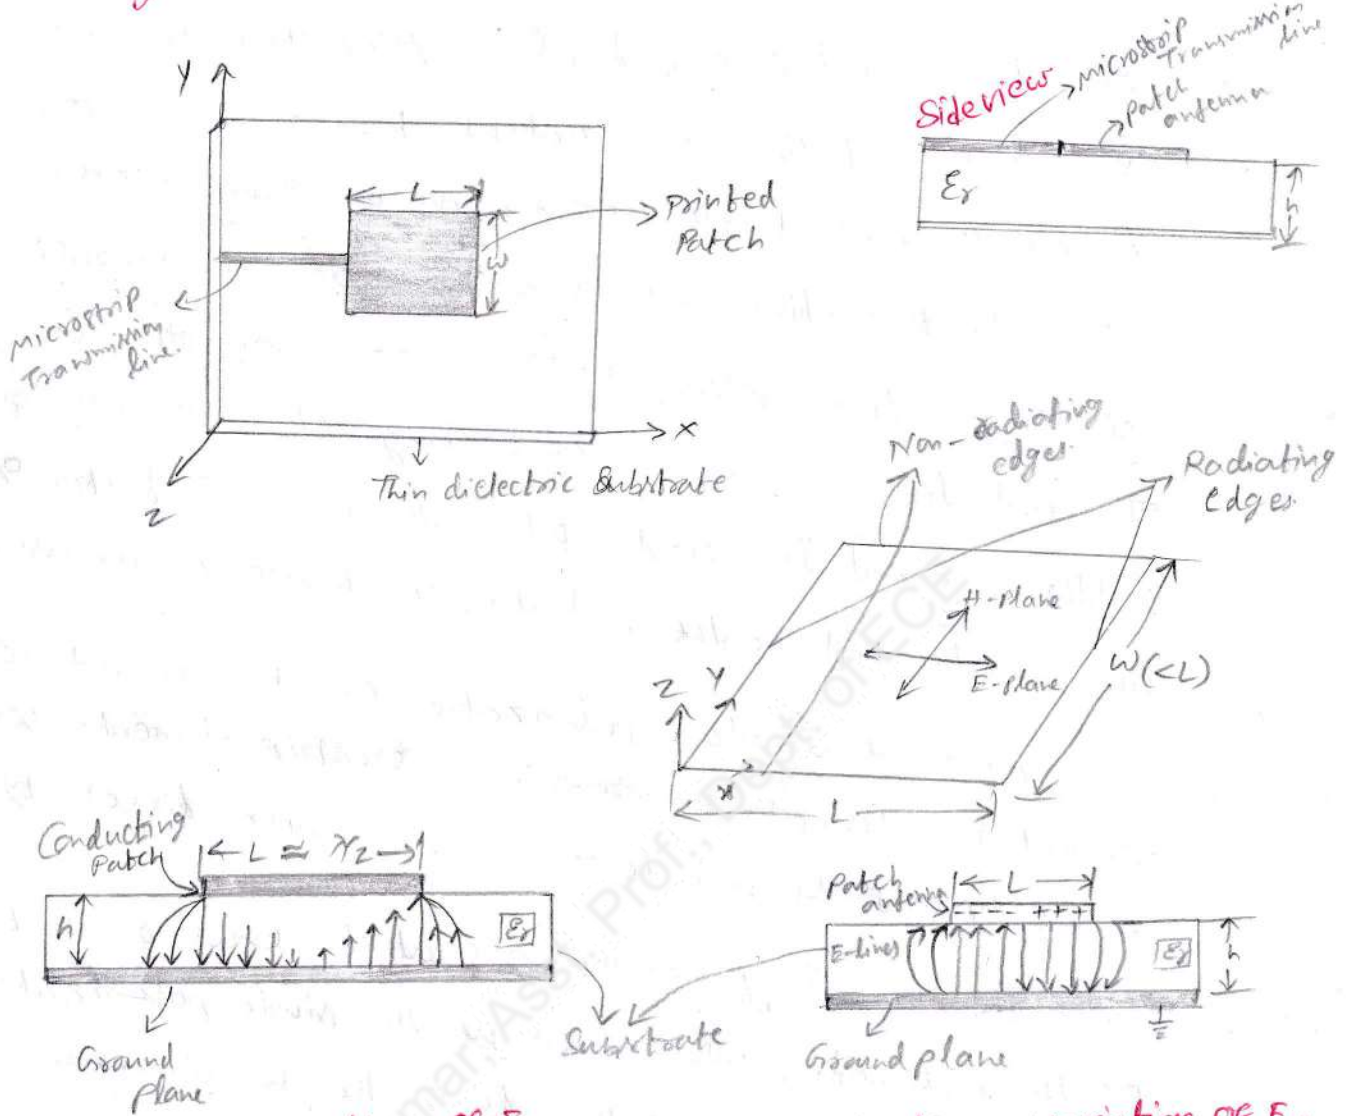 Y
L
W
Printed
Patch
Microstrip
Transmission
line.
X
Z
Thin dielectric Substrate
Sideview
Microstrip
Transmission
line
patch
antenna
Er
h
Non-radiating
edges.
Radiating
Edges.
H-plane
E-plane
W(<L)
Z
Y
x
L
Conducting
Patch
L ≃ λ/2
h
Er
Ground
plane
Substrate
Patch
antenna
L
- - - - + + +
E-lines
Er
h
Ground plane
Asst Prof., Dept of ECE
of E